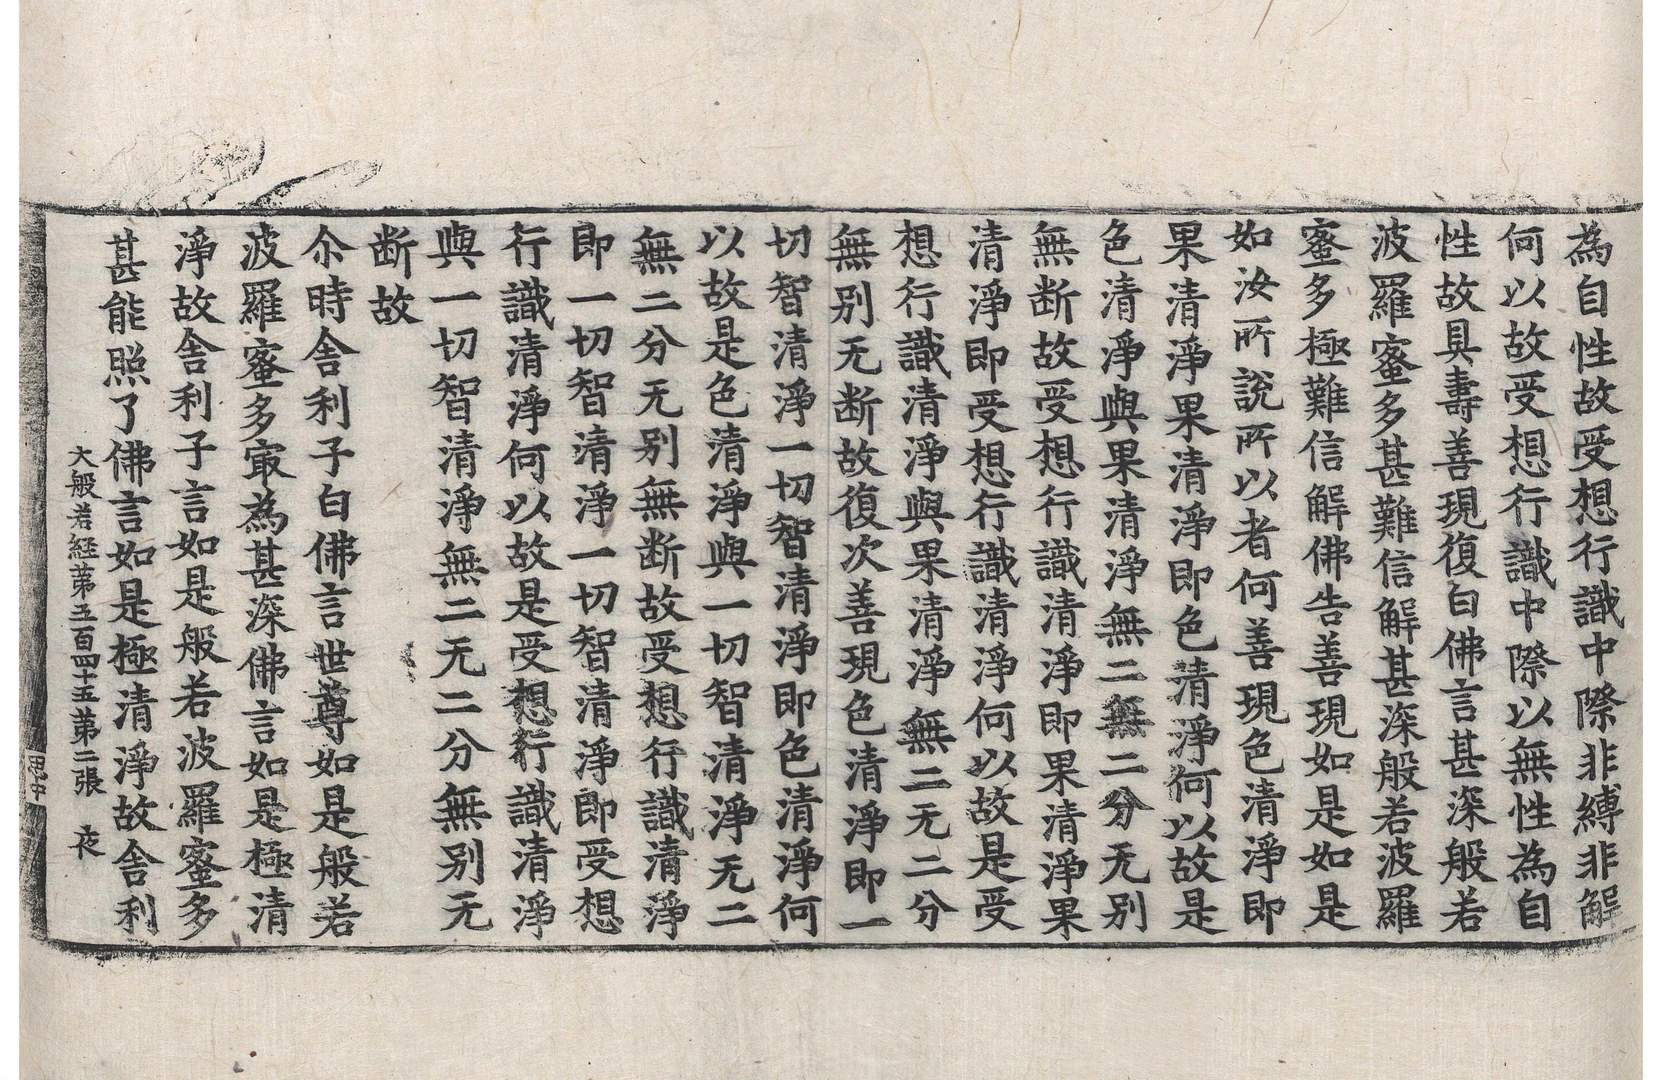 為自性故受想行識中際非縛非解
何以故受想行識中際以無性為自
性故具壽善現復白佛言甚深般若
波羅蜜多甚難信解甚深般若波羅
蜜多極難信解佛告善現如是如是
如汝所說所以者何善現色清淨即
果清淨果清淨即色清淨何以故是
色清淨與果清淨無二無二分无別
無斷故受想行識清淨即果清淨果
清淨即受想行識清淨何以故是受
想行識清淨與果清淨無二无二分
無別无斷故復次善現色清淨即一
切智清淨一切智清淨即色清淨何
以故是色清淨與一切智清淨无二
無二分无別無斷故受想行識清淨
即一切智清淨一切智清淨即受想
行識清淨何以故是受想行識清淨
與一切智清淨無二无二分無別无
斷故
尒時舍利子白佛言世尊如是般若
波羅蜜多㝡為甚深佛言如是極清
淨故舍利子言如是般若波羅蜜多
甚能照了佛言如是極清淨故舍利
大般若経苐五百四十五苐二張 夜
思中